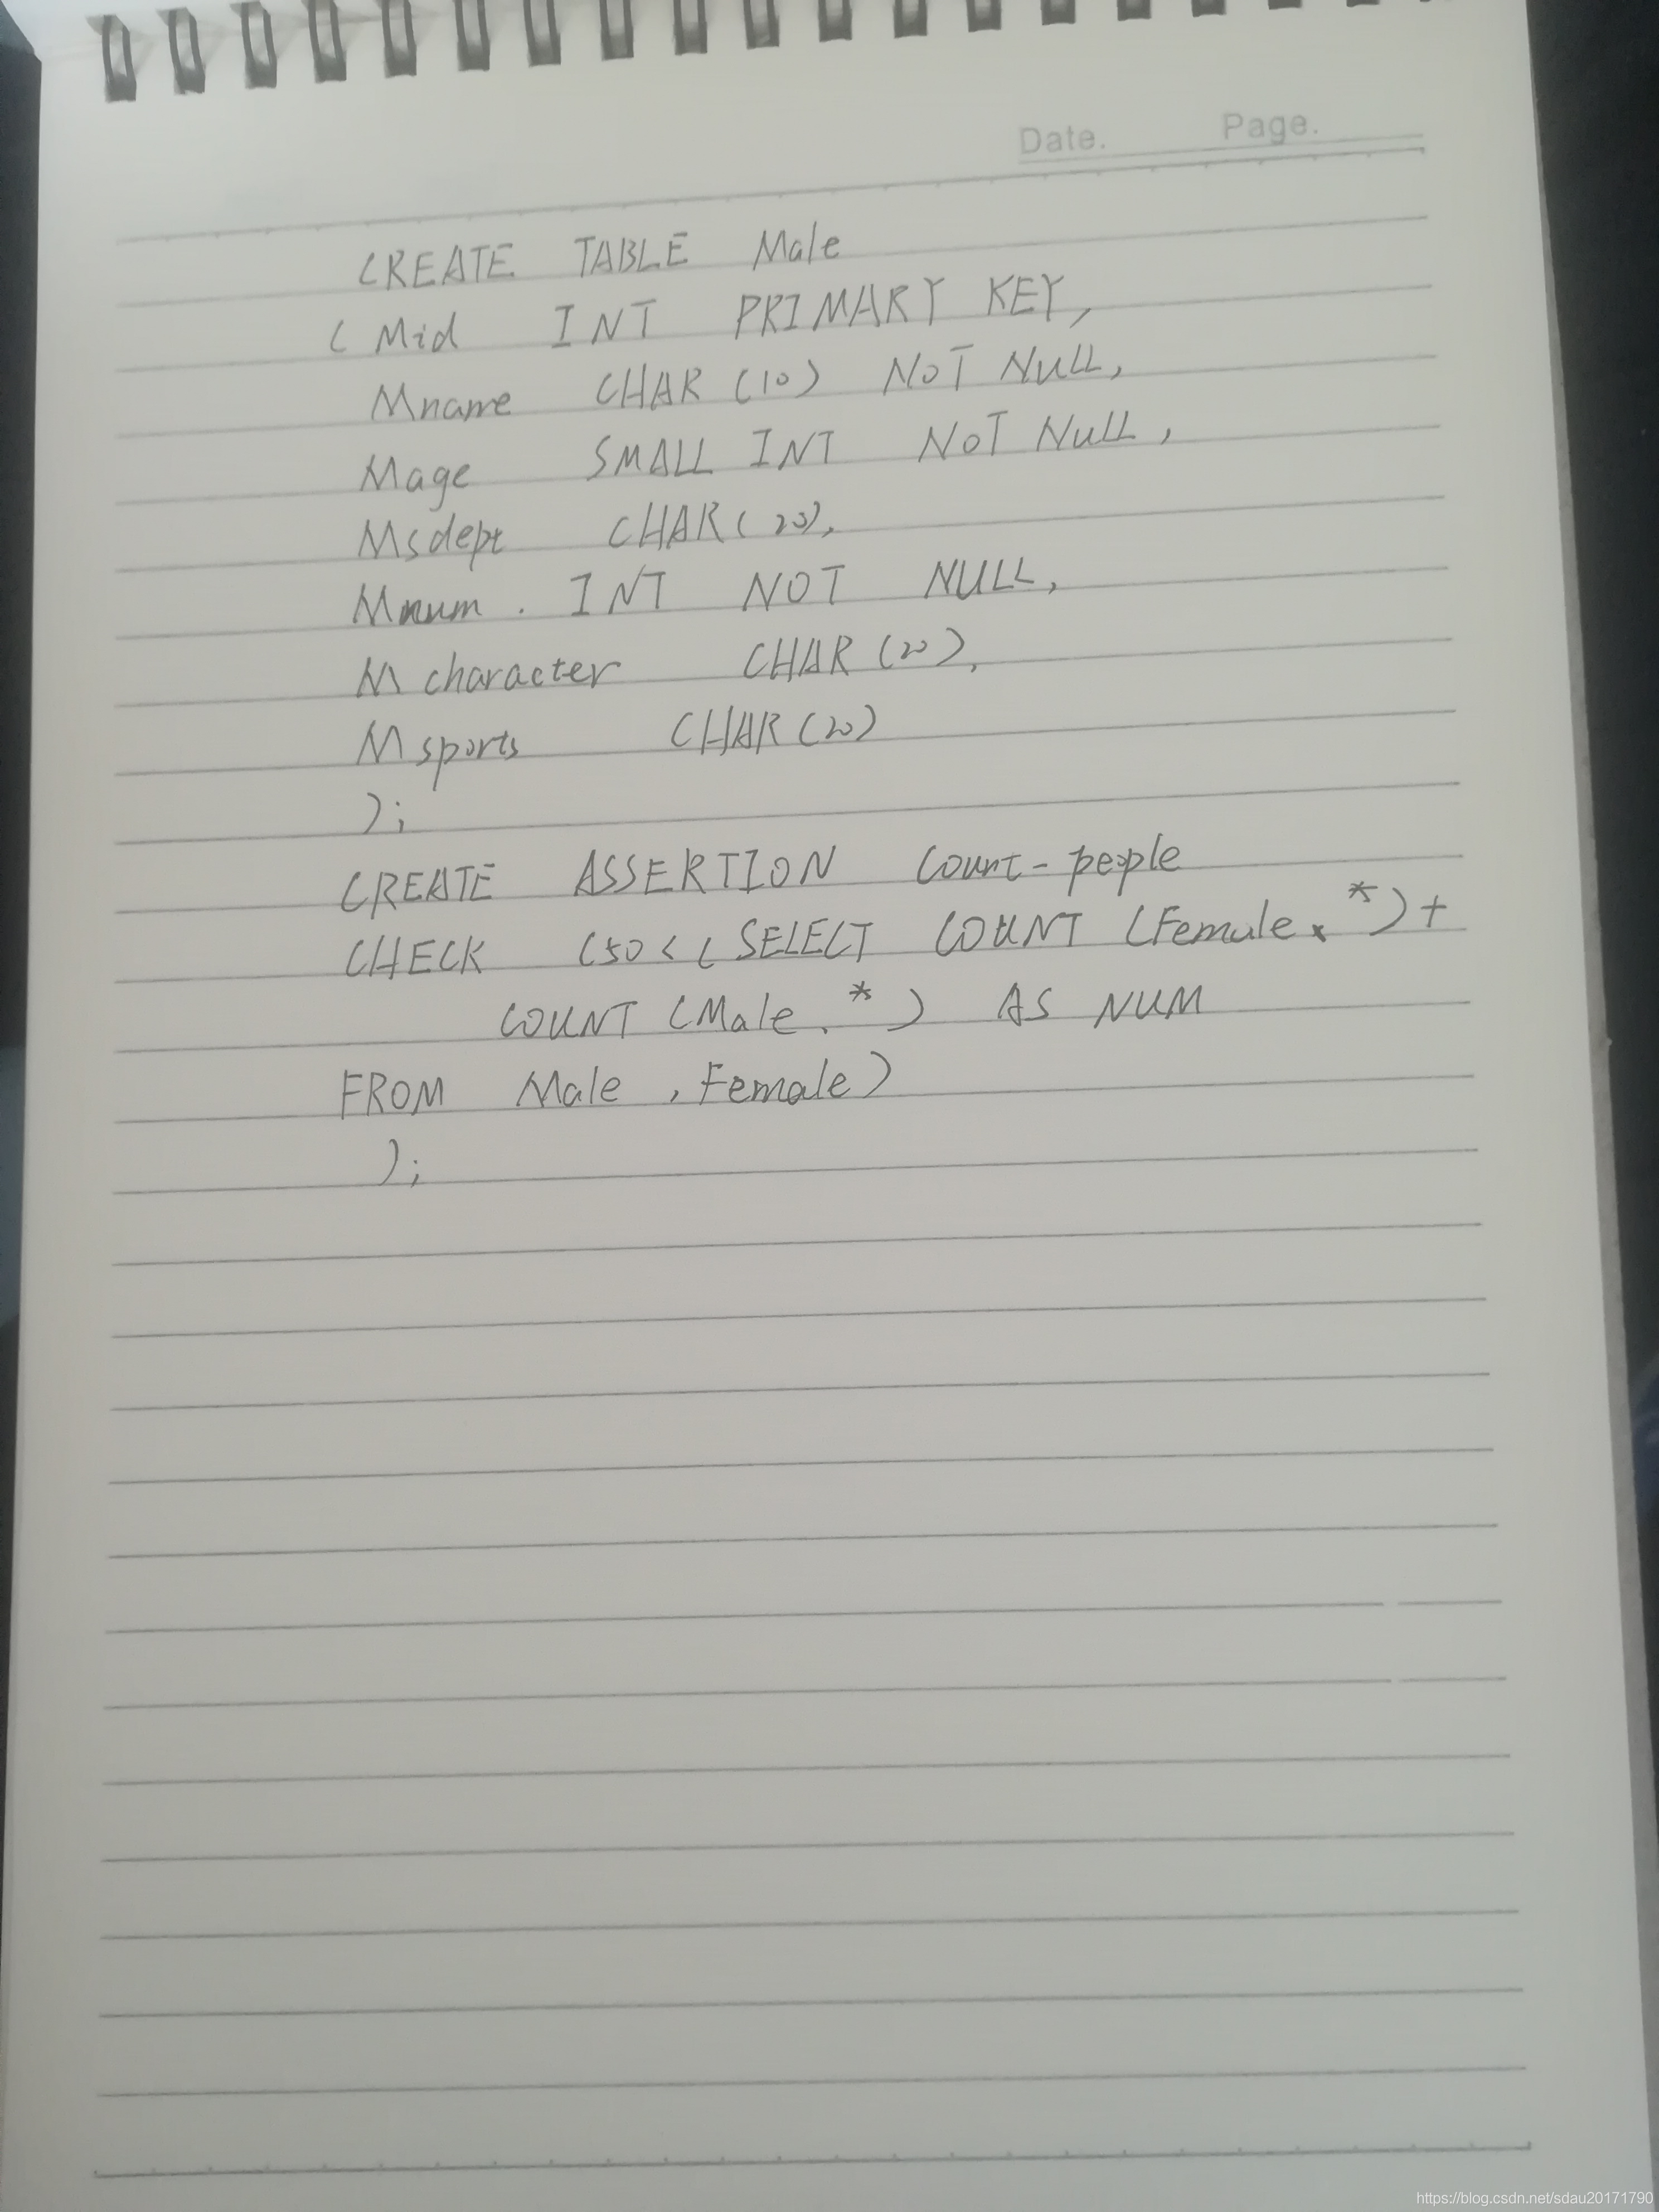 Date. Page.
CREATE TABLE Male
( Mid INT PRIMARY KEY,
Mname CHAR (10) NOT NULL,
Mage SMALL INT NOT NULL,
Msdept CHAR (20),
Mnum . INT NOT NULL,
Mcharacter CHAR (20),
Msports CHAR (20)
);
CREATE ASSERTION Count-people
CHECK (50 < ( SELECT COUNT (Female. *) +
COUNT (Male. *) AS NUM
FROM Male , Female)
);
https://blog.csdn.net/sdau20171790